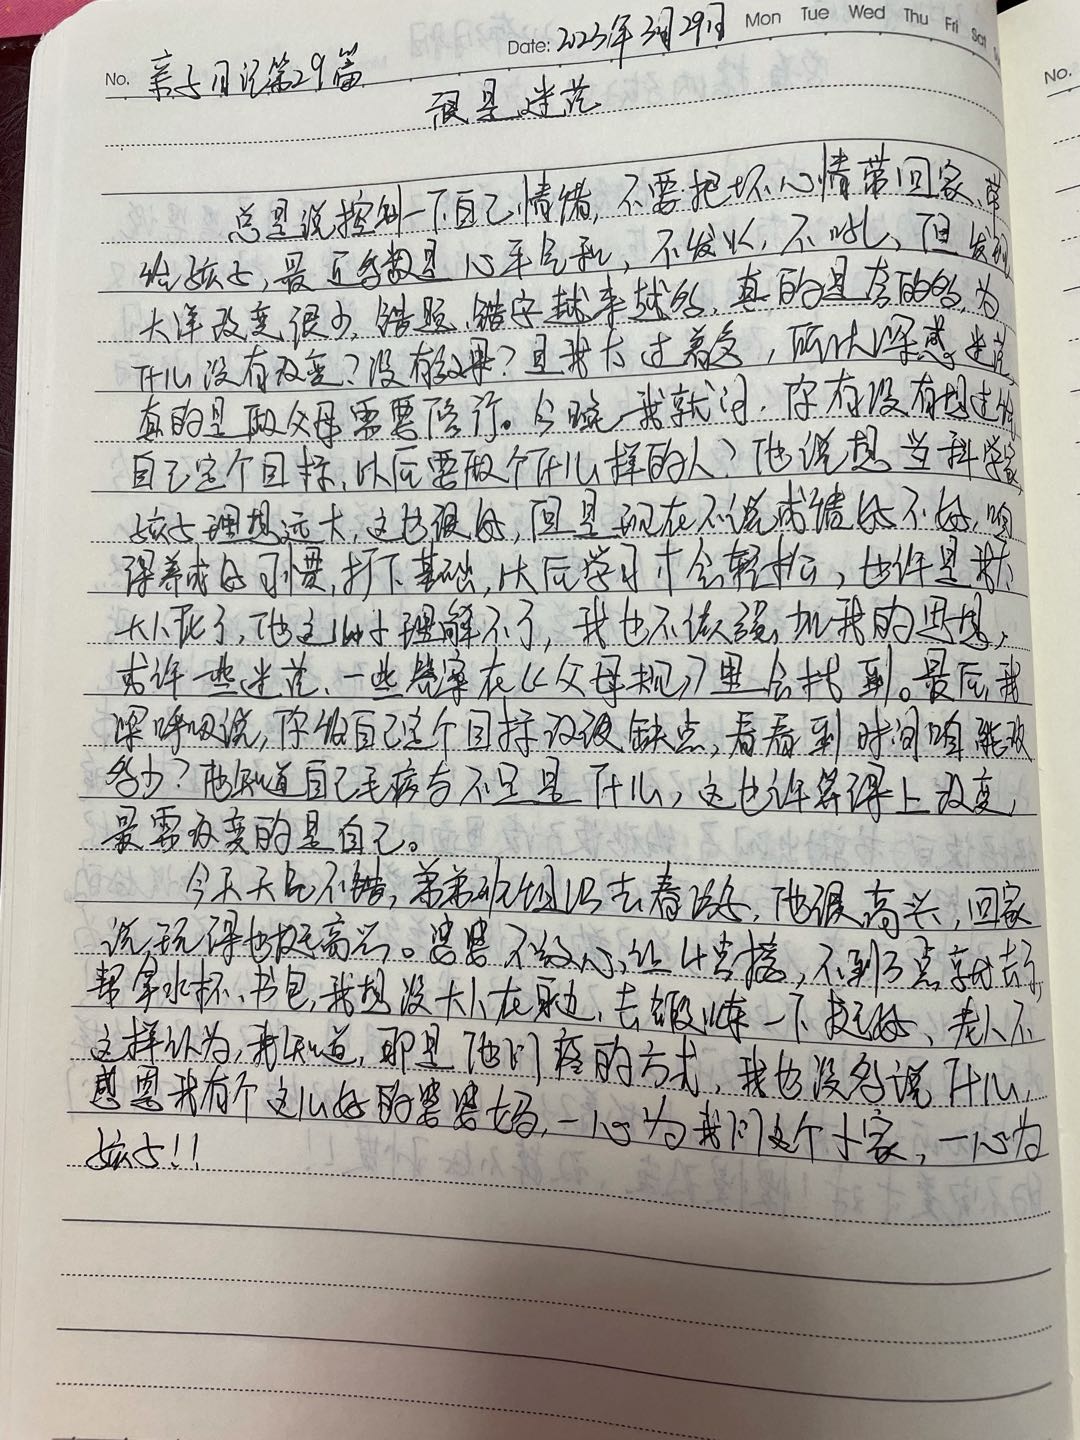 Date: 2023年3月29日 Mon Tue Wed Thu Fri Sat
No. 亲子日记第29篇
No.
很是迷茫
总是说控制一下自己情绪,不要把坏心情带回家、带
给孩子,最近多数是心平气和,不发火,不吼,但发现
大洋改变很少,错题、错字越来越多,真的是多的多,为
什么没有改变?没有效果?是我太过着急,所以深感迷茫,
真的是做父母需要修行。今晚我就问,你有没有想过给
自己定个目标,以后要做个什么样的人?他说想当科学家,
孩子理想远大,这也很好,但是现在不说成绩好不好,咱
得养成好习惯,打下基础,以后学习才会轻松,也许是我太
大小了,他这理解不了,我也不做强加我的思想,
或许一些迷茫、一些答案在《父母规》里会找到。最后我
深呼吸说,你给自己定个目标改改缺点,看看到时间咱能改
多少?他知道自己毛病与不足是什么,这也许算得上改变,
最需改变的是自己。
今天天气不错,弟弟班组织去春游,他很高兴,回家
说玩得也挺高兴。婆婆不放心,让4点接,不到3点就去了,
帮拿水杯、书包,我想没大人在身边,去锻炼一下挺好、老人不
这样认为,我知道,那是他们疼的方式,我也没多说什么,
感恩我有个这么好的婆婆妈,一心为我们这个小家,一心为
孩子!!